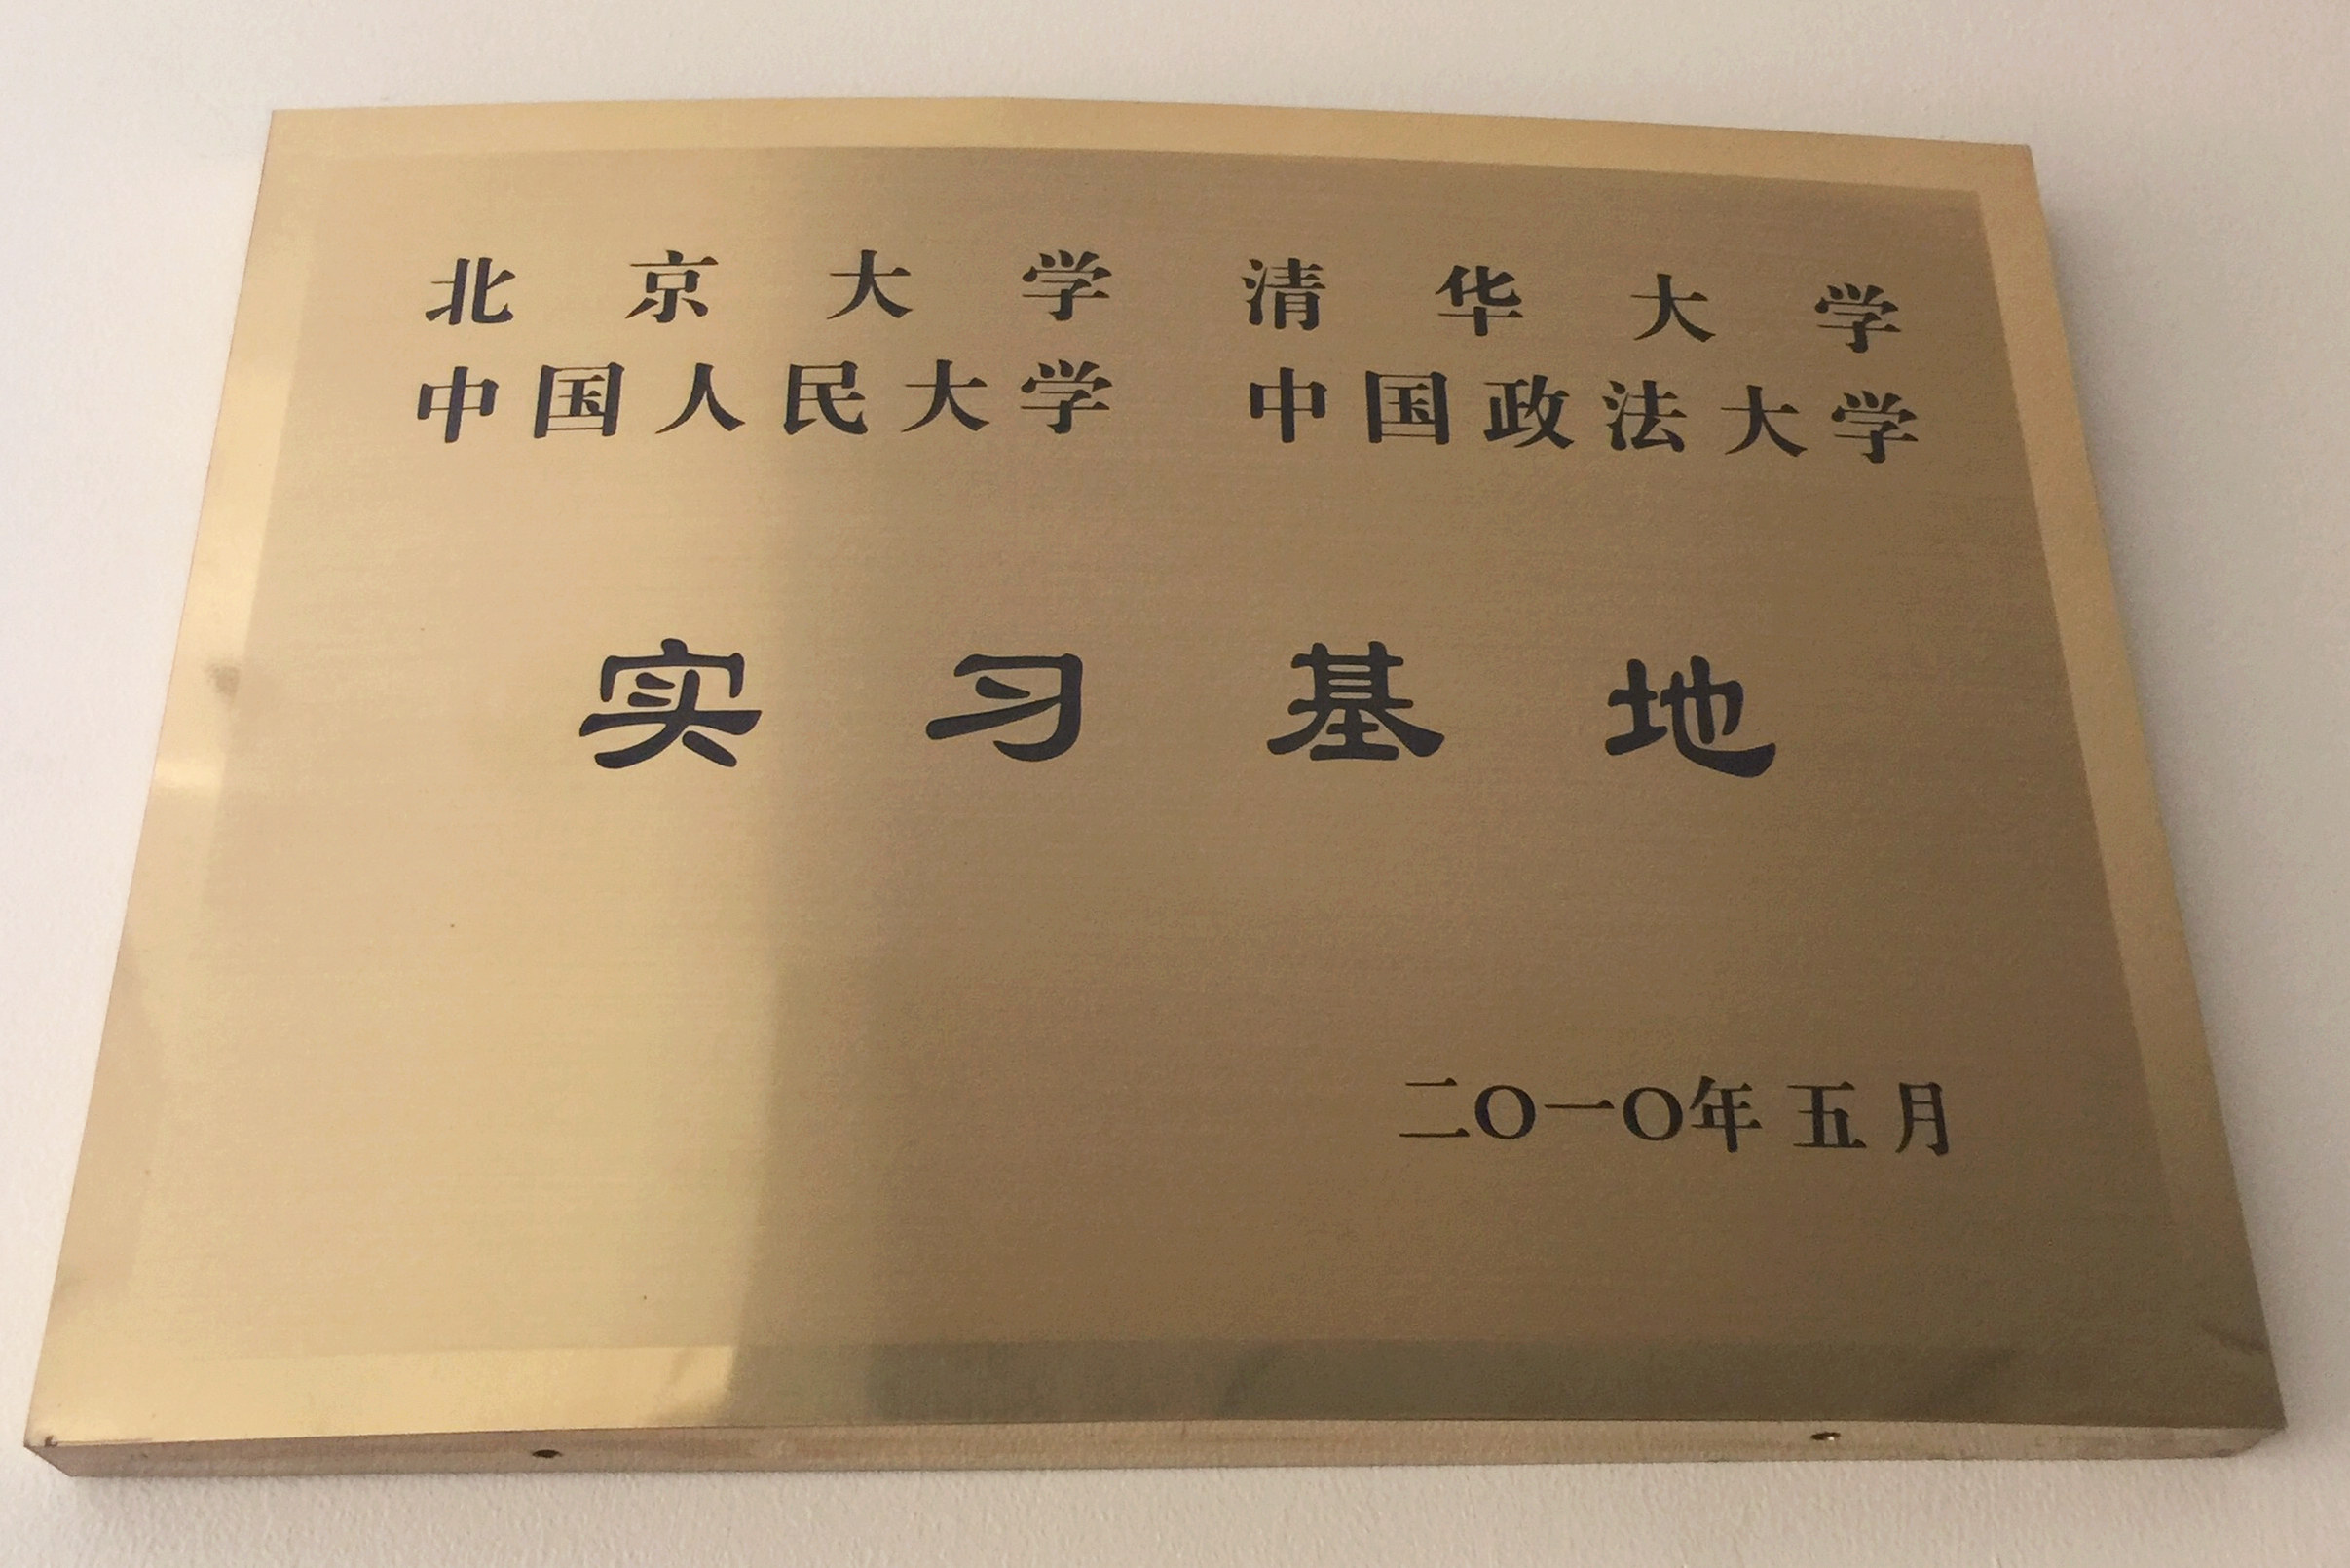 北京大学 清华大学
中国人民大学 中国政法大学
实习基地
二〇一〇年五月